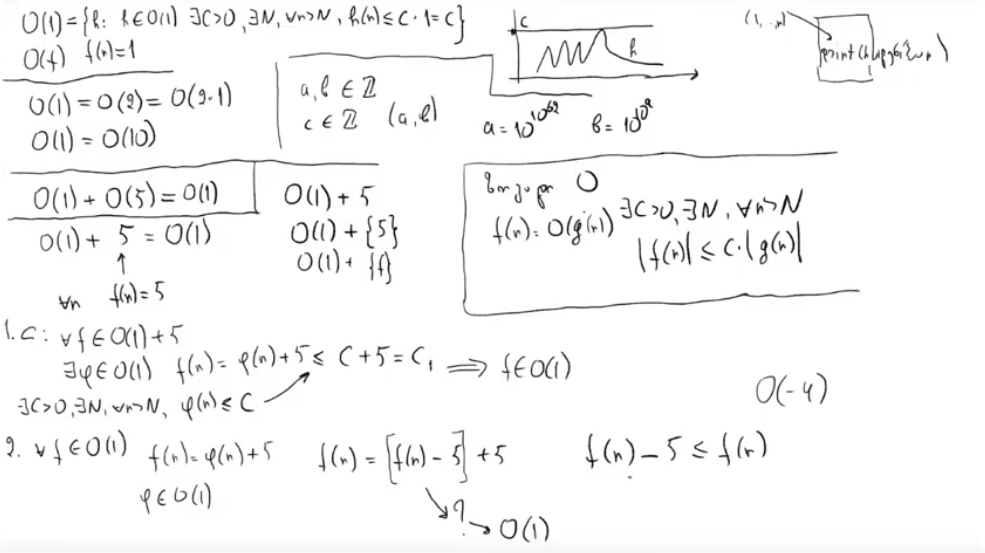 O(1) = {h: h∈O(1) ∃C>0, ∃N, ∀n>N, h(n) ≤ C·1 = C}
O(f) f(n)=1
O(1) = O(2) = O(2·1)
O(1) = O(10)
a, b ∈ ℤ
c ∈ ℤ (a, b)
c
h
a = 10^10^62 b = 10^10^2
O(1) + O(5) = O(1)
O(1) + 5 = O(1)
∀n f(n) = 5
O(1) + 5
O(1) + {5}
O(1) + {f}
O
f(n) = O(g(n)) ∃C>0, ∃N, ∀n>N
|f(n)| ≤ C·|g(n)|
1. ⊂: ∀f∈O(1)+5
∃φ∈O(1) f(n) = φ(n)+5 ≤ C+5 = C₁ ⟹ f∈O(1)
∃C>0, ∃N, ∀n>N, φ(n) ≤ C
O(-4)
2. ∀f∈O(1) f(n) = φ(n)+5 f(n) = [f(n) - 5] + 5 f(n) - 5 ≤ f(n)
φ∈O(1)
? → O(1)